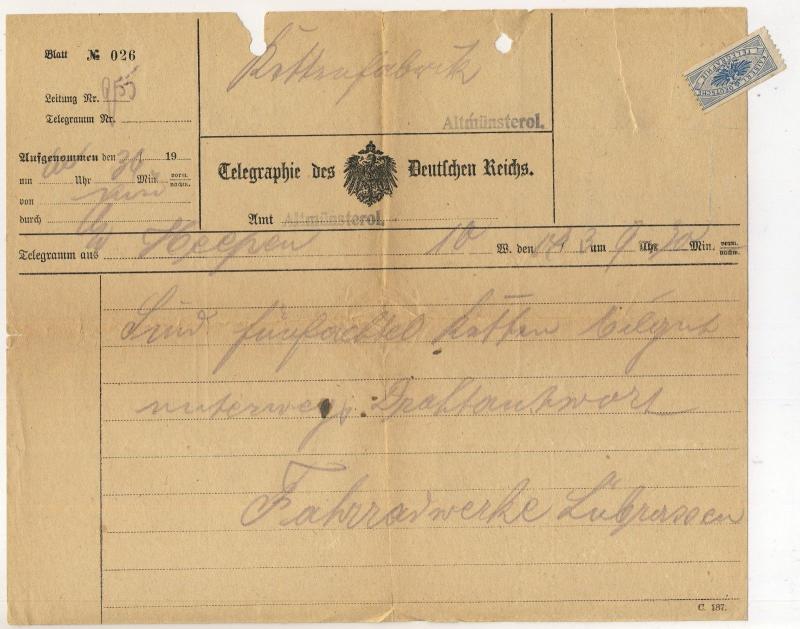 Blatt № 026
Leitung Nr.
Telegramm Nr.
Aufgenommen den 30 / 19
um Uhr Min. vorm. nachm.
von
durch
Kettenfabrik
Altmünsterol.
Telegraphie des Deutschen Reichs.
Amt Altmünsterol.
KAISERL. DEUTSCHE TELEGRAPHIE
Telegramm aus Heepen 10 W. den 3 um 9 Uhr 30 Min. vorm. nachm.
Sind fünfachtel Ketten Eilgut
unterwegs. Drahtantwort
Fahrradwerke Lübrassen
C. 187.